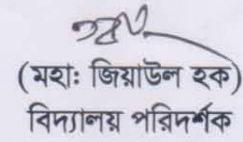 (মহাঃ জিয়াউল হক)
বিদ্যালয় পরিদর্শক